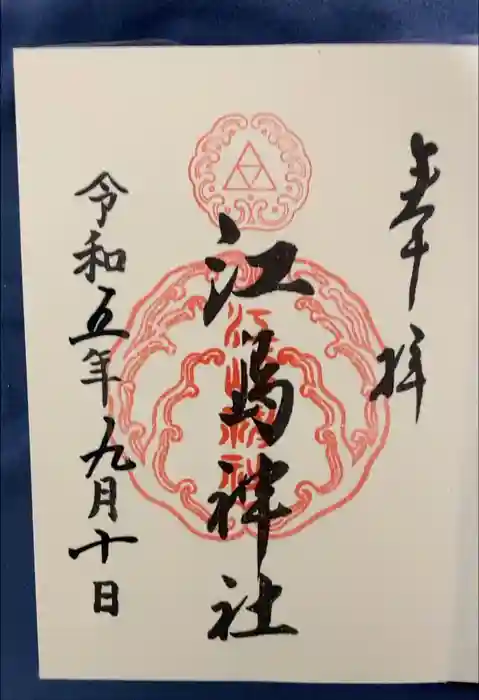 奉拝
江島神社
江島神社
令和五年九月十日